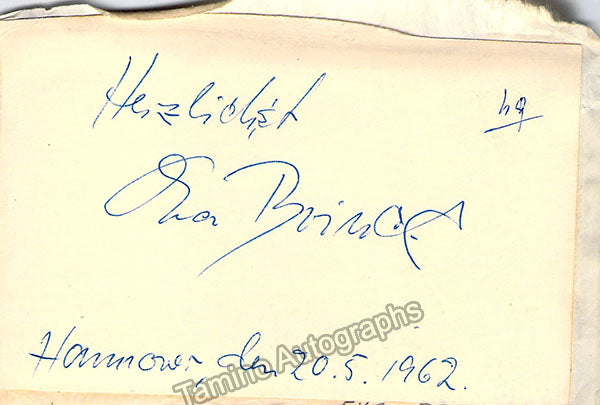 Herzlichst
Eva Brinck
Hannover, den 20.5.1962.
Tamino Autographs